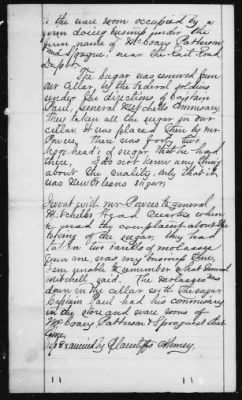 is the ware room occupied by a
firm doing business under the
firm name of McCrary Patterson
and Sprague near the Rail road
Depot.
The sugar was removed from
our Cellar, by the Federal soldiers
under the directions of Captain
Paul, General Mitchells Commissary,
they taken all the sugar in our
cellar. It was placed there by Mr
Powers, there was forty two
hogs heads of sugar that he had
there, I do not know any thing
about the quality, only that it
was New Orleans sugar,
I went with Mr Powers to General
Mitchells Head Quarters when
he made the complaint about the
taking of the sugar, they had
taken two barrels of molasses
from me was my business there,
I am unable to remember what General
Mitchell said. The molasses was
down in the cellar with the sugar
Captain Paul had his commissary
in the store and ware rooms of
McCrary Patterson & Sprague at that
time.
Examined by Plaintiffs Attorney.